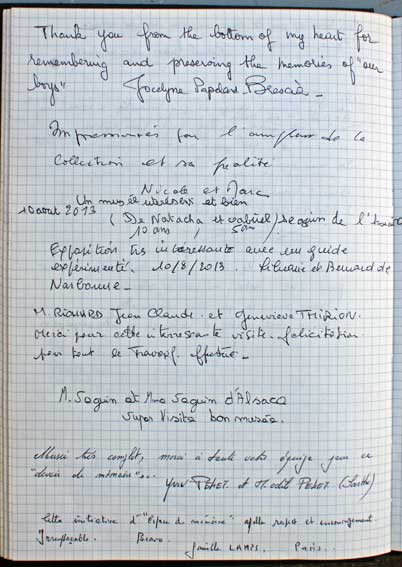 Thank you from the bottom of my heart for
remembering and preserving the memories of "our
boys" Jocelyne Papelard Brescia
Impressionnés par l'ampleur de la
Collection et sa qualité
Nicole et Marc
Un musée et bien
10 aout 2013 (De Natacha et Gabriel) de l'
10 ans, 5 ans
Exposition très intéressante avec un guide
expérimenté. 10/8/2013. et Bernard de
Narbonne
M. RICHARD Jean Claude et Geneviève THIRION
merci pour cette interressante visite félicitation
pour tout le Travail effectué
M. Seguin et Mme Seguin d'Alsace
Super Visite bon musée.
Musée très complet, merci à toute votre équipe pour ce
"devoir de mémoire"... Yvon PENET et Odile PENET (Sarthe)
Cette initiative d' de mémoire" appelle respect et encouragement
Irremplaçable. Bravo.
famille LAMY. Paris.